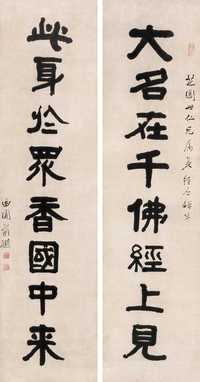 大名在千佛經上見
世仁兄屬
此身於眾香國中来
曲園俞樾